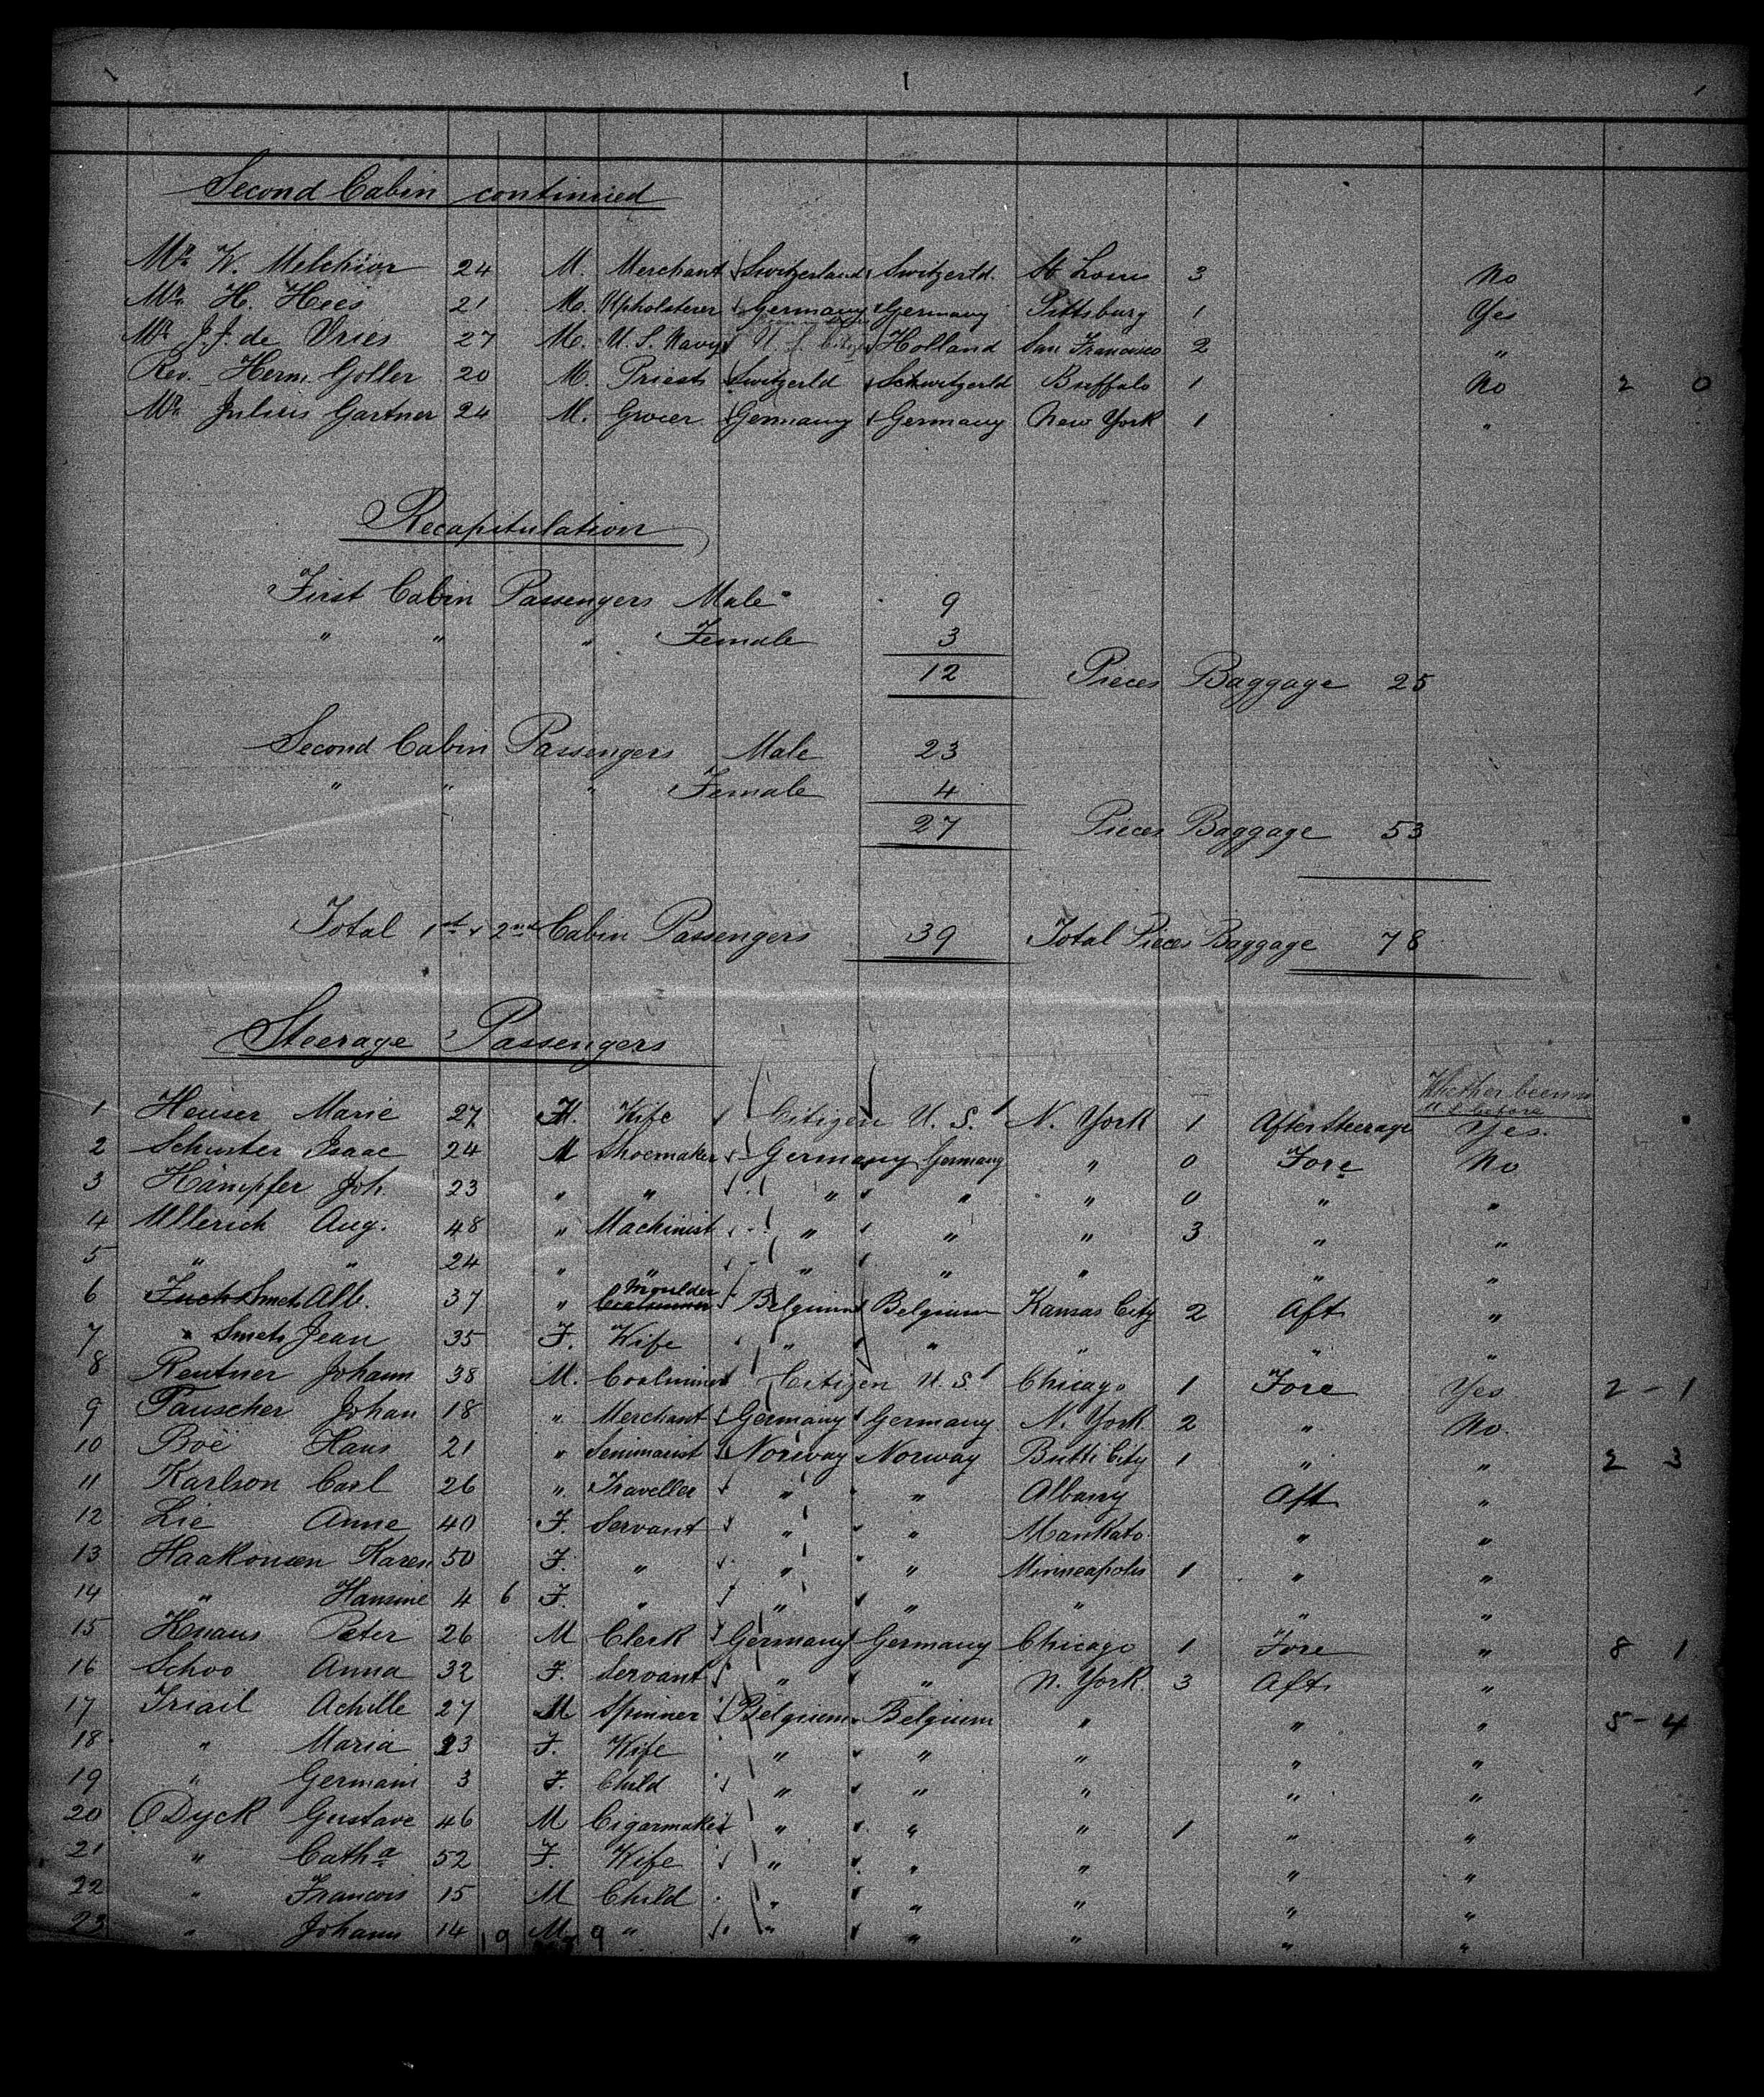 Second Cabin continued
Mr. W. Melchior 24 M. Merchant Switzerland Switzertd. St. Louis 3 No
Mr. H. Hees 21 M. Upholsterer Germany Germany Pittsburg 1 Yes
Mr. J. J. de Vries 27 M. U. S. Navy U. S. Holland San Francisco 2 "
Rev. Herm. Goller 20 M. Priest Switzerld Schwitzerld Buffalo 1 No 2 0
Mr. Julius Gartner 24 M. Grocer Germany Germany New York 1 "
Recapitulation
First Cabin Passengers Male 9
" " " Female 3
12 Pieces Baggage 25
Second Cabin Passengers Male 23
" " " Female 4
27 Pieces Baggage 53
Total 1st & 2nd Cabin Passengers 39 Total Pieces Baggage 78
Steerage Passengers
Whether been in
U. S. before
1 Heuser Marie 27 Wife Citizen U. S. N. York 1 After Steerage Yes.
2 Schuster Isaac 24 M Shoemaker Germany Germany " 0 Fore No
3 Hämpfer Joh. 23 " " " " " 0 " "
4 Ullerich Aug. 48 " Machinist " " " 3 " "
5 " " 24 " " " " " " "
6 Smets Alb. 37 " Moulder Belgium Belgium Kansas City 2 Aft "
7 " Smets Jean 35 F. Wife " " " " "
8 Reutner Johann 38 M. Coalminer Citizen U. S. Chicago 1 Fore Yes 2 - 1
9 Tauscher Johan 18 " Merchant Germany Germany N. York 2 " No.
10 Boë Hans 21 " Seminarist Norway Norway Butte City 1 " " 2 3
11 Karlson Carl 26 " Traveller " " Albany Aft "
12 Lie Anne 40 F. Servant " " Mankato " "
13 Haakonsen Karen 50 F. " " " Minneapolis 1 " "
14 " Hansine 4 6 F. " " " " " "
15 Knaus Peter 26 M Clerk Germany Germany Chicago 1 Fore " 8 1
16 Schoo Anna 32 F. Servant " " N. York 3 Aft "
17 Triail Achille 27 M Spinner Belgium Belgium " " " 5 - 4
18 " Maria 23 F. Wife " " " " "
19 " Germain 3 F. Child " " " " "
20 ODyck Gustave 46 M Cigarmaker " " " 1 " "
21 " Catha 52 F. Wife " " " " "
22 " Francois 15 M Child " " " " "
23 " Johann 14 M " " " " " "